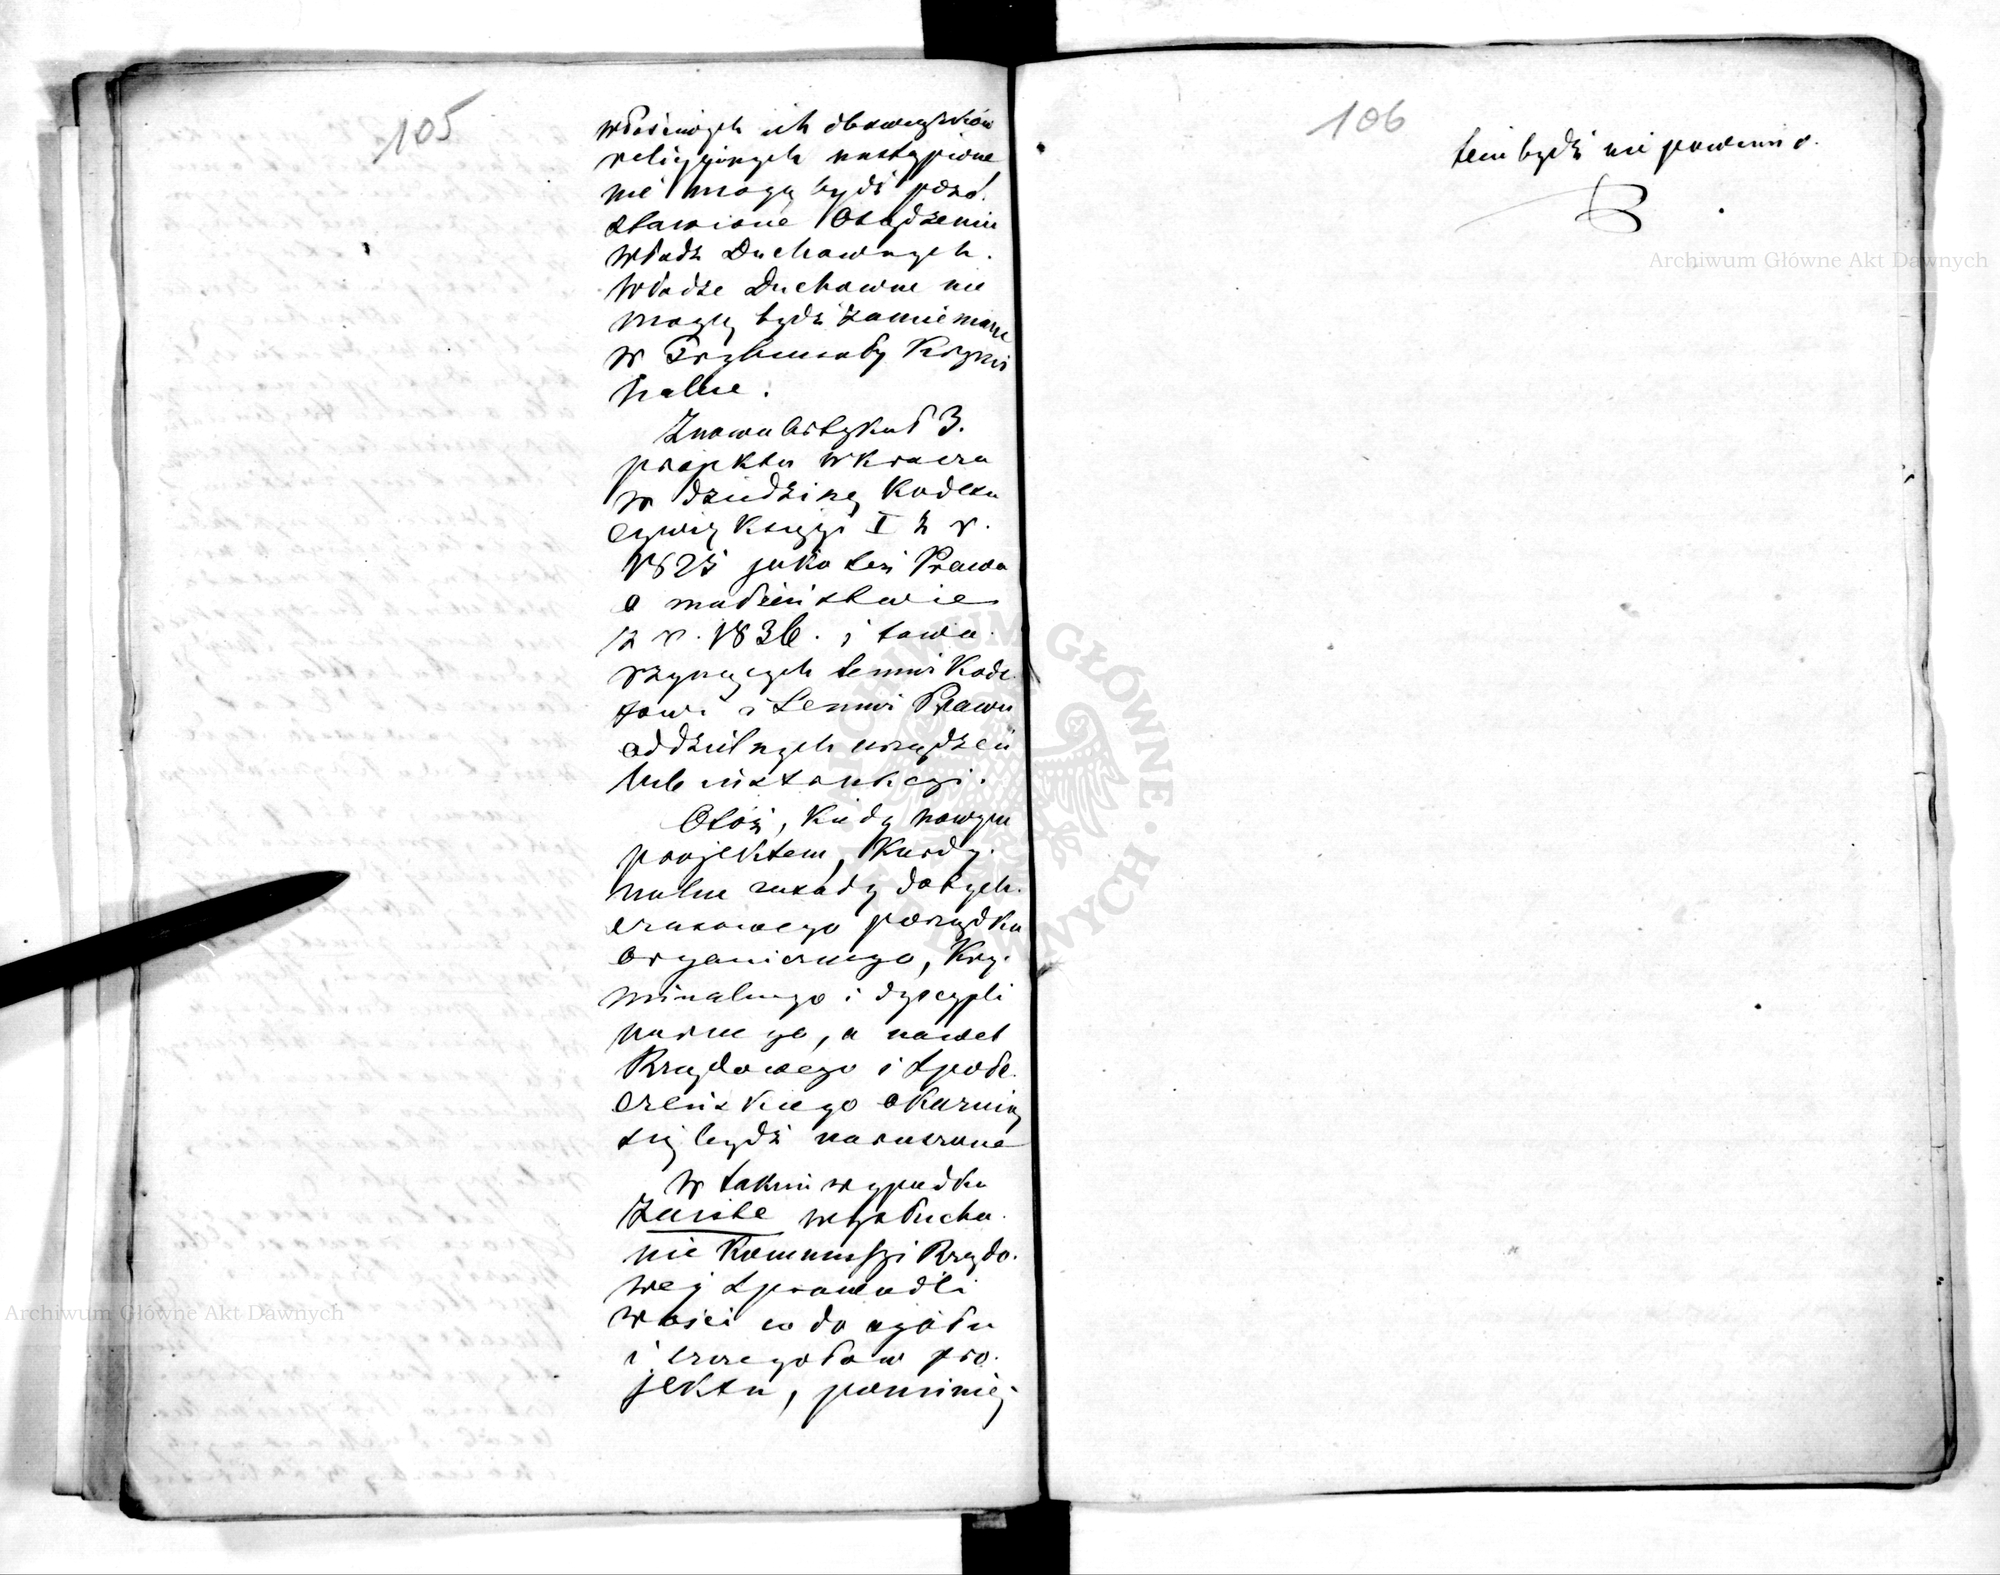 105
właściwych ich obowiązków
religijnych nastąpione
nie mogą bydź pozo.
stawione Osądzeniu
władz Duchownych.
Władze Duchowne nie
mogą bydź zamieniane
w Trybunały Krymi
nalne.
Znowu Artykuł 3.
projektu wkracza
w dziedzinę Kodexu
cywil Księgi I z r.
1825 jako też Prawa
o małżeństwie
z r. 1836. i towa.
rzyszących temuż Kode
xowi i temuż Prawu
oddzielnych urządzeń
lub instrukcyi.
Otóż, Kiedy nowym
projektem, Kardy.
nalne zasady dotych.
czasowego porządku
organicznego, Kry.
minalnego i dyscypli
narnego, a nawet
Rządowego i społe.
czeńskiego okazują
się bydź naruszone
w takim wypadku
Zaiste wysłucha.
nie Kommissyi Rządo.
wej Sprawiedli
wości co do ogółu
i szczegółów pro.
jektu, pominię-
106
tem bydź nie powinno.
Archiwum Główne Akt Dawnych
Archiwum Główne Akt Dawnych
ARCHIWUM GŁÓWNE AKT DAWNYCH